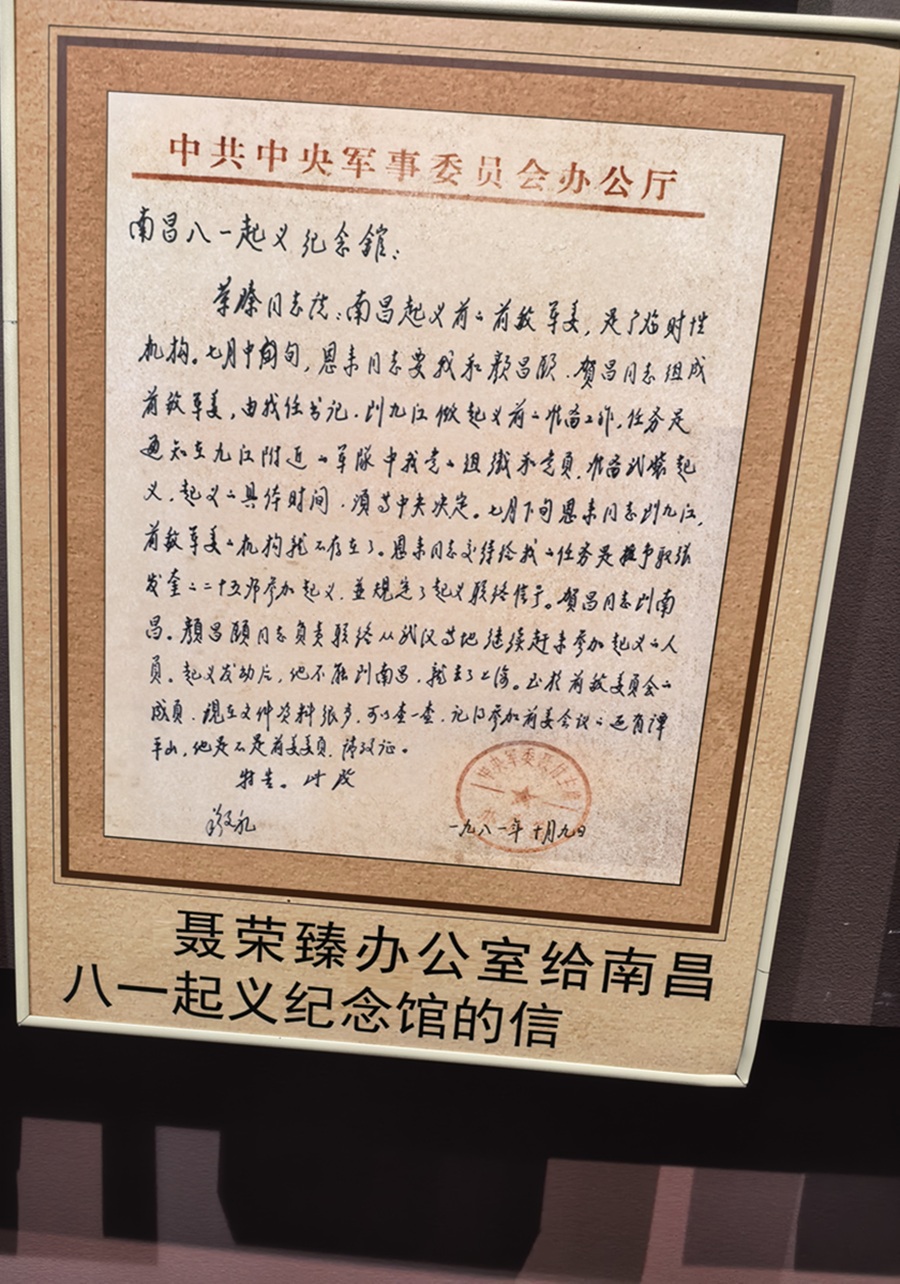 中共中央军事委员会办公厅
南昌八一起义纪念馆：
荣臻同志谈：南昌起义前的前敌军委，是个临时性
机构。七月中旬，恩来同志要我和颜昌颐、贺昌同志组成
前敌军委，由我任书记，到九江做起义前的准备工作，任务是
通知在九江附近的军队中我党的组织和党员，准备武装起
义，起义的具体时间，须等中央决定。七月下旬恩来同志到九江，
前敌军委的机构就不存在了。恩来同志交待给我的任务是争取张
发奎的二十五师参加起义，並规定了起义联络信号。贺昌同志到南
昌。颜昌颐同志负责联络从武汉等地继续赶来参加起义的人
员。起义发动后，他不能到南昌，就去了上海。至于前敌委员会的
成员，现在文件资料很多，可以查一查，记得参加前委会议的还有谭
平山，他是不是前委委员，请考证。
特告。此致
敬礼
一九八一年十月九日
聂荣臻办公室给南昌
八一起义纪念馆的信